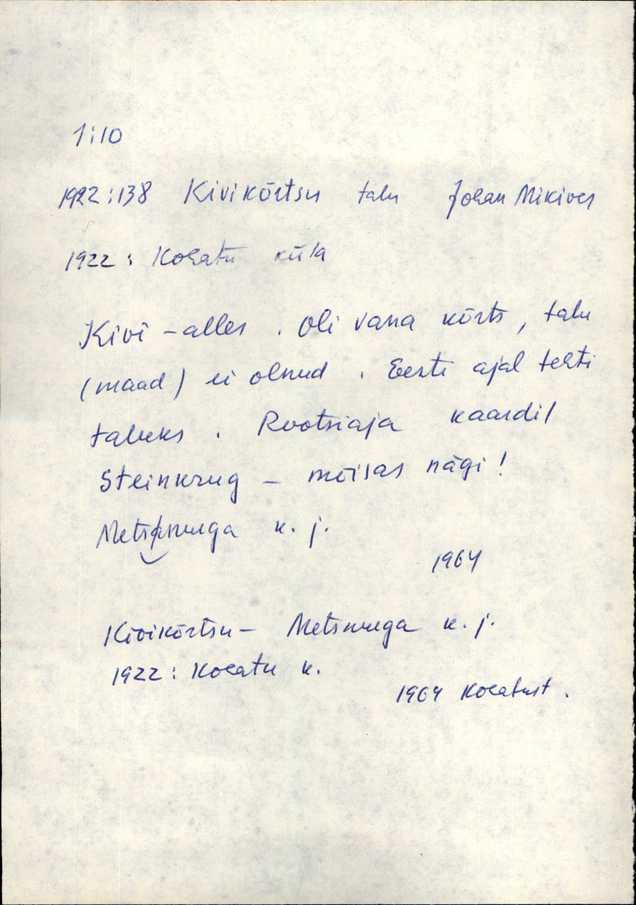 1:10
1922:138 Kivikõrtsu talu Johan Mikiver
1922: Kohatu küla
Kivi - alles. Oli vana kõrts, talu
(maad) ei olnud. Eesti ajal tehti
taluks. Rootsiaja kaardil
Steinkrug - mõisas nägi!
k. j.
1964
Kivikõrtsu - k. j.
1922: Kohatu k.
1964 Kohatust.